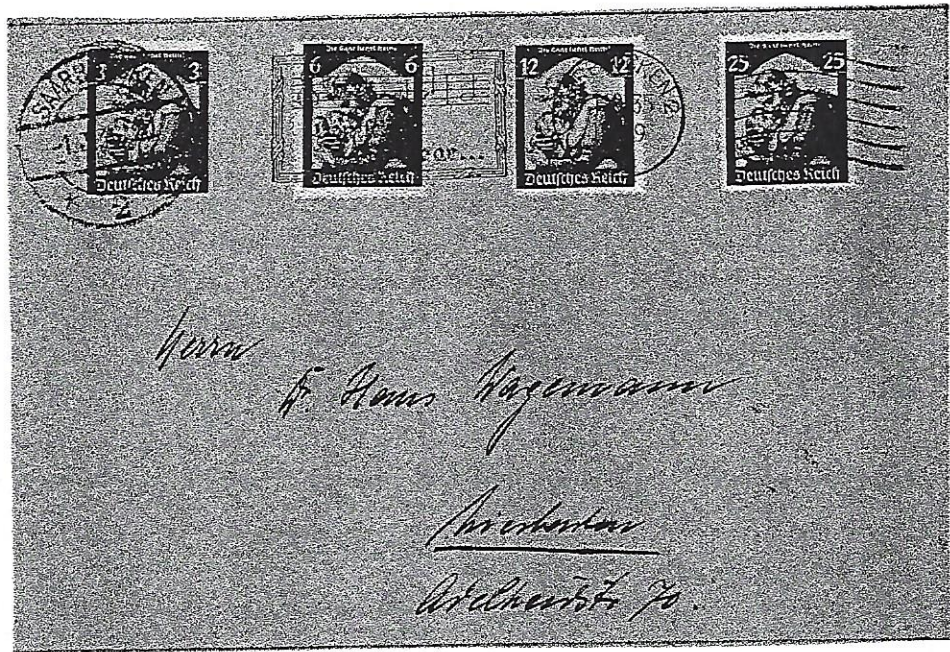 Die Saar kehrt heim!
3 3
Deutsches Reich
Die Saar kehrt heim!
6 6
Deutsches Reich
Die Saar kehrt heim!
12 12
Deutsches Reich
Die Saar kehrt heim!
25 25
Deutsches Reich
SAARBRÜCKEN
2
KEN 2
Herrn
Dr. Hans Wagemann
Wiesbaden
Adelheidstr 70.